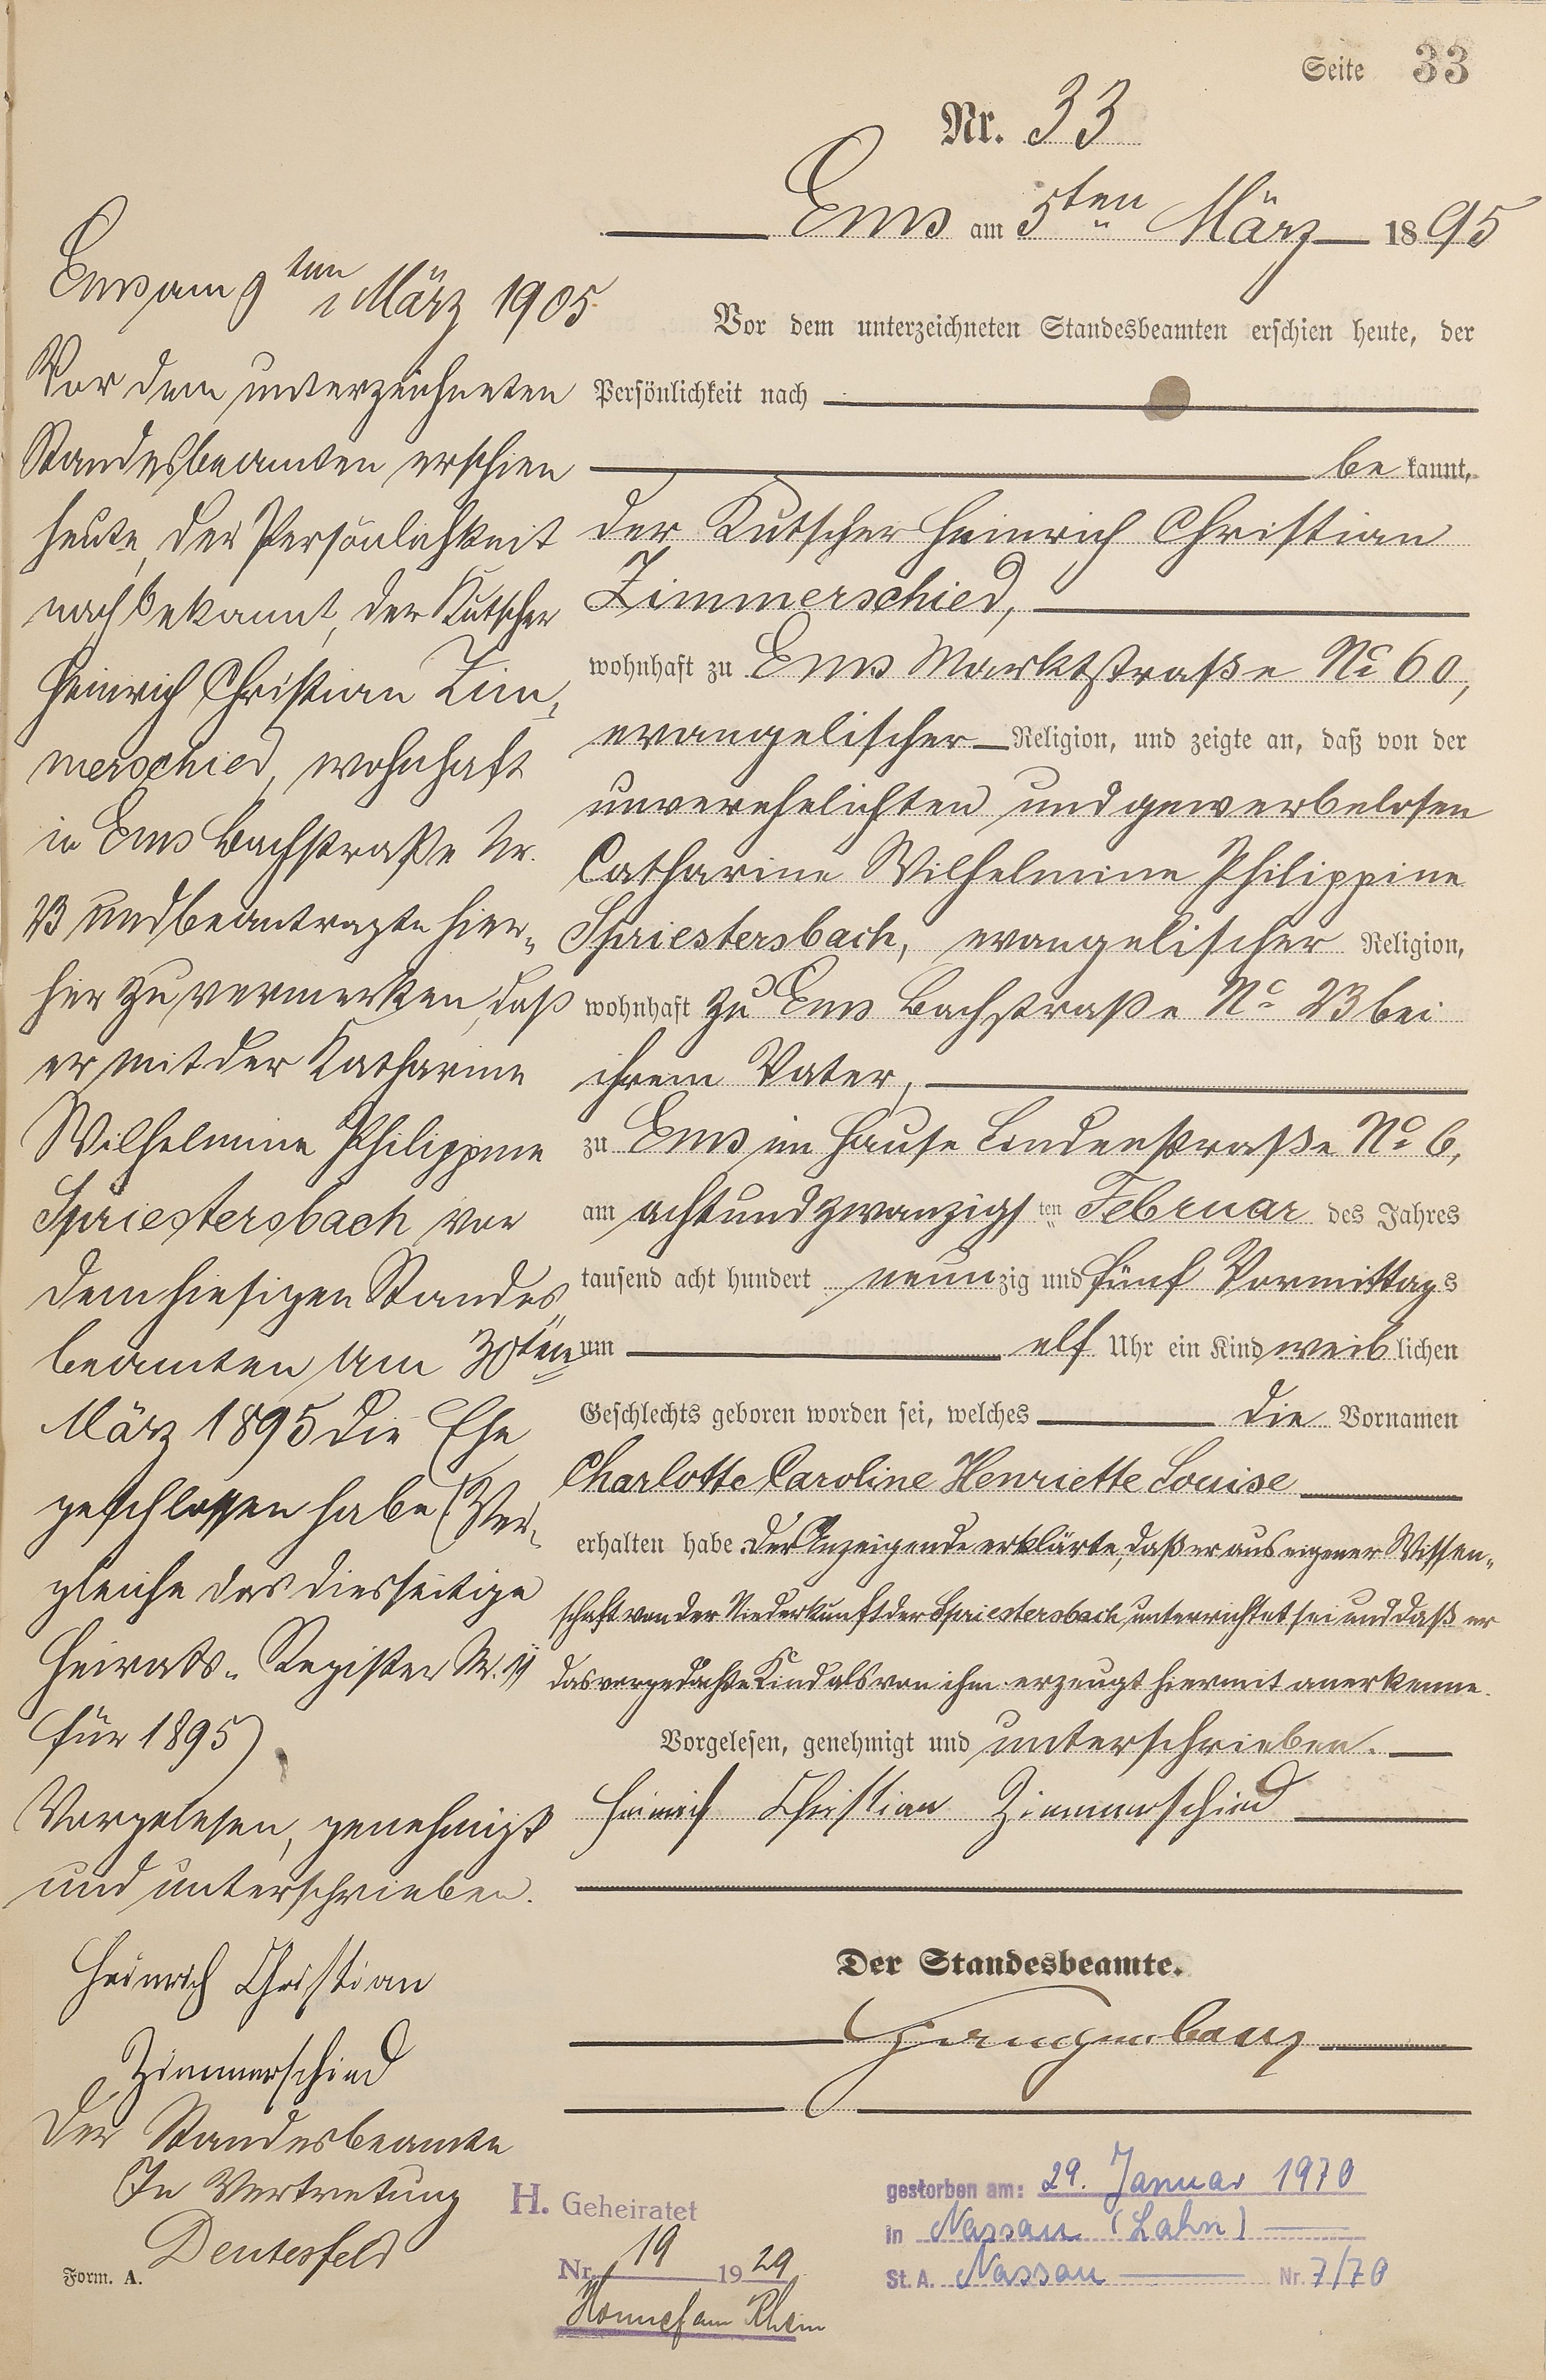 Seite 33
Nr. 33
Ems am 5ten März 1895
Vor dem unterzeichneten Standesbeamten erschien heute, der
Persönlichkeit nach
be kannt,
der Kutscher Heinrich Christian
Zimmerschied,
wohnhaft zu Ems Marktstraße No 60,
evangelischer Religion, und zeigte an, daß von der
unverehelichten und gewerbelosen
Catharine Wilhelmine Philippine
Spriestersbach, evangelischer Religion,
wohnhaft zu Ems Bachstraße No 23 bei
ihrem Vater,
zu Ems im Hause Lindenstraße No 6,
am achtundzwanzigsten Februar des Jahres
tausend acht hundert neunzig und fünf Vormittags
um elf Uhr ein Kind weiblichen
Geschlechts geboren worden sei, welches die Vornamen
Charlotte Caroline Henriette Louise
erhalten habe. Der Anzeigende erklärte, daß er aus eigener Wissen-
schaft von der Niederkunft der Spriestersbach unterrichtet sei und daß er
das vorgedachte Kind als von ihm erzeugt hiermit anerkenne.
Vorgelesen, genehmigt und unterschrieben.
Heinrich Christian Zimmerschied
Der Standesbeamte.
Ems am 9ten März 1905
Vor dem unterzeichneten
Standesbeamten erschien
heute, der Persönlichkeit
nach bekannt, der Kutscher
Heinrich Christian Zim-
merschied, wohnhaft
in Ems Bachstraße Nr.
23 und beantragte hier-
her zu vermerken, daß
er mit der Katharine
Wilhelmine Philippine
Spriestersbach vor
dem hiesigen Standes
beamten am 30ten
März 1895 die Ehe
geschlossen habe (Ver-
gleiche das diesseitige
Heirats-Register Nr. 11
für 1895)
Vorgelesen, genehmigt
und unterschrieben.
Heinrich Christian
Zimmerschied
Der Standesbeamte
In Vertretung
Deutesfeld
Form. A.
H. Geheiratet
Nr. 19 1929
Honnef am Rhein
gestorben am: 29. Januar 1970
in Nassau (Lahn)
St. A. Nassau Nr. 7/70